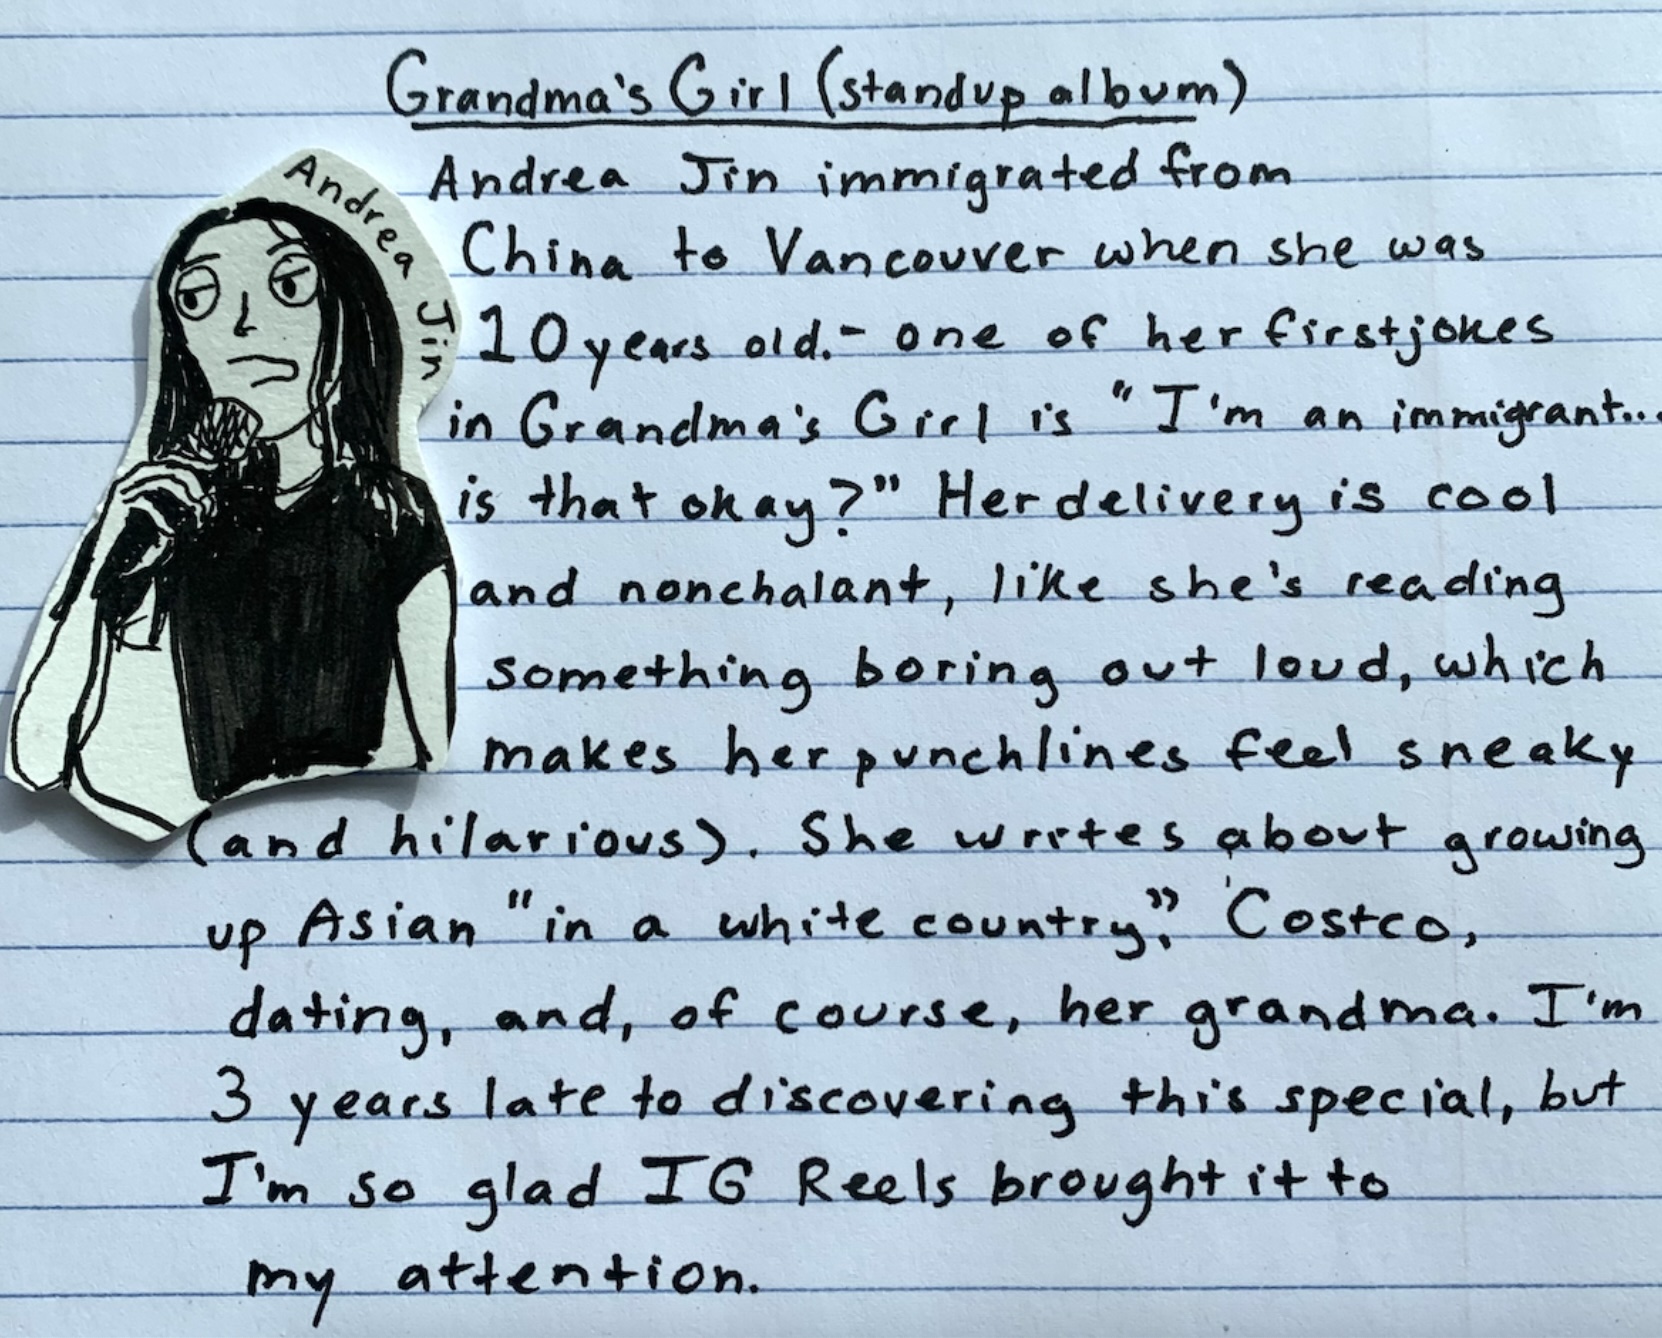 Grandma's Girl (standup album)
Andrea Jin
Andrea Jin immigrated from
China to Vancouver when she was
10 years old.- one of her first jokes
in Grandma's Girl is "I'm an immigrant...
is that okay?" Her delivery is cool
and nonchalant, like she's reading
something boring out loud, which
makes her punchlines feel sneaky
(and hilarious). She writes about growing
up Asian "in a white country", Costco,
dating, and, of course, her grandma. I'm
3 years late to discovering this special, but
I'm so glad IG Reels brought it to
my attention.